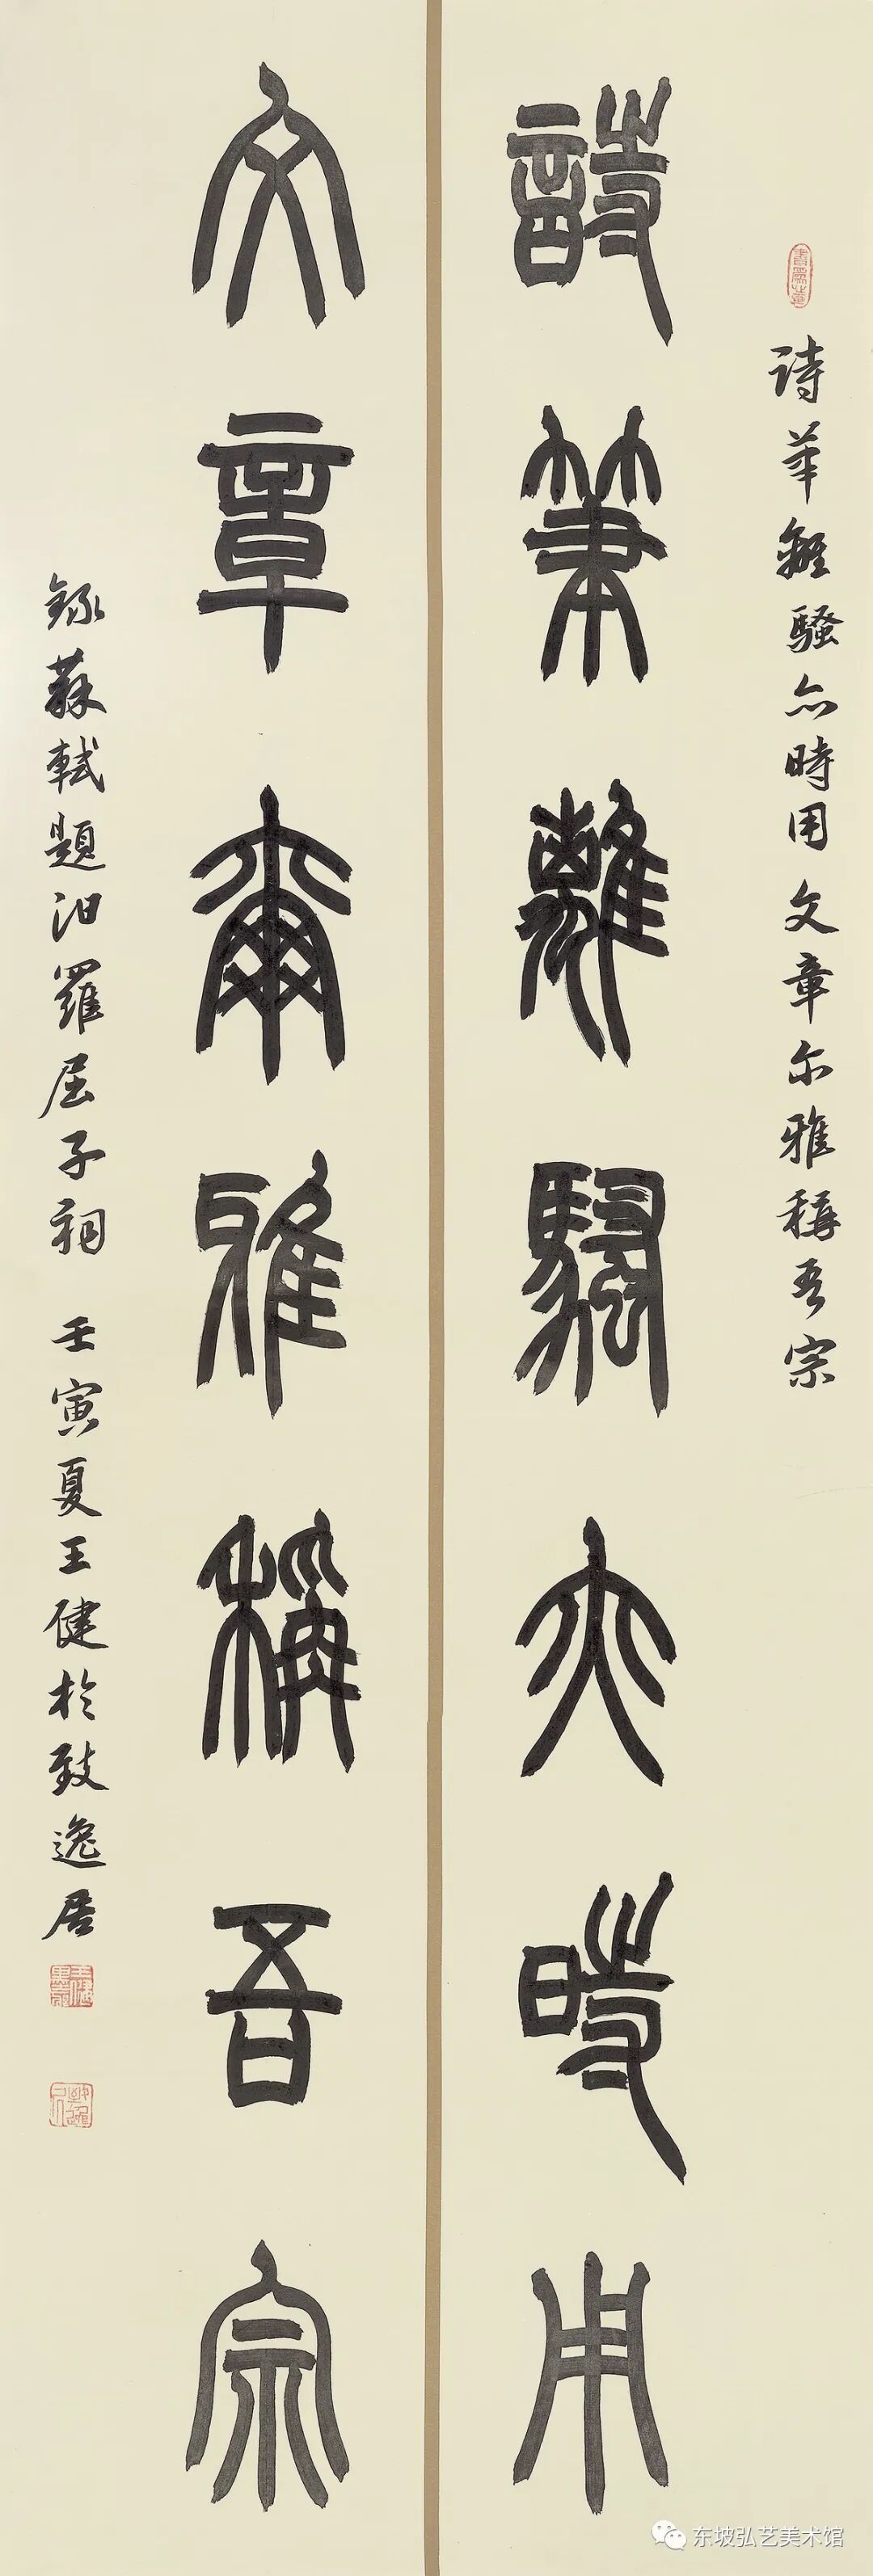 诗筆離騷亦時用文章尔雅稱吾宗
詩筆離騷亦時用
文章爾雅稱吾宗
録蘇軾題汨羅屈子祠 壬寅夏王健於致逸居
东坡弘艺美术馆